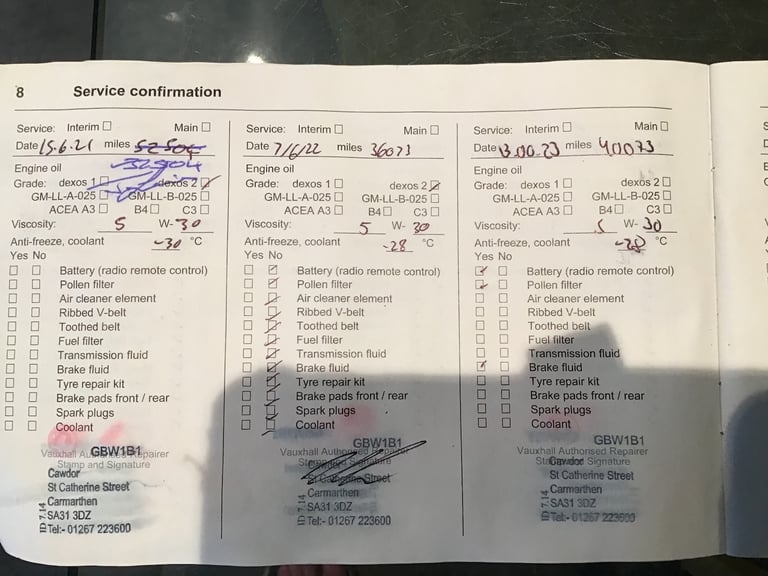 8 Service confirmation
Service: Interim ☐ Main ☐
Date 15.6.21 miles 52504
32504
Engine oil
Grade: dexos 1 ☐ dexos 2 ☑
GM-LL-A-025 ☐ GM-LL-B-025 ☐
ACEA A3 ☐ B4 ☐ C3 ☐
Viscosity: 5 W-30
Anti-freeze, coolant -30 °C
Yes No
☐ ☐ Battery (radio remote control)
☐ ☐ Pollen filter
☐ ☐ Air cleaner element
☐ ☐ Ribbed V-belt
☐ ☐ Toothed belt
☐ ☐ Fuel filter
☐ ☐ Transmission fluid
☐ ☐ Brake fluid
☐ ☐ Tyre repair kit
☐ ☐ Brake pads front / rear
☐ ☐ Spark plugs
☐ ☐ Coolant
GBW1B1
Vauxhall Authorised Repairer
Stamp and Signature
Cawdor
St Catherine Street
Carmarthen
SA31 3DZ
Tel:- 01267 223600
ID 7.14
Service: Interim ☐ Main ☐
Date 7/6/22 miles 36073
Engine oil
Grade: dexos 1 ☐ dexos 2 ☑
GM-LL-A-025 ☐ GM-LL-B-025 ☐
ACEA A3 ☐ B4 ☐ C3 ☐
Viscosity: 5 W-30
Anti-freeze, coolant -28 °C
Yes No
☐ ☑ Battery (radio remote control)
☐ ☑ Pollen filter
☐ ☑ Air cleaner element
☐ ☑ Ribbed V-belt
☐ ☑ Toothed belt
☐ ☑ Fuel filter
☐ ☑ Transmission fluid
☐ ☑ Brake fluid
☐ ☑ Tyre repair kit
☐ ☑ Brake pads front / rear
☐ ☑ Spark plugs
☐ ☑ Coolant
GBW1B1
Vauxhall Authorised Repairer
Stamp and Signature
St Catherine Street
Carmarthen
SA31 3DZ
Tel:- 01267 223600
ID 7.14
Service: Interim ☐ Main ☐
Date miles 40073
Engine oil
Grade: dexos 1 ☐ dexos 2 ☐
GM-LL-A-025 ☐ GM-LL-B-025 ☐
ACEA A3 ☐ B4 ☐ C3 ☐
Viscosity: 5 W-30
Anti-freeze, coolant -28 °C
Yes No
☑ ☐ Battery (radio remote control)
☑ ☐ Pollen filter
☐ ☐ Air cleaner element
☐ ☐ Ribbed V-belt
☐ ☐ Toothed belt
☐ ☐ Fuel filter
☐ ☐ Transmission fluid
☑ ☐ Brake fluid
☐ ☐ Tyre repair kit
☐ ☐ Brake pads front / rear
☐ ☐ Spark plugs
☐ ☐ Coolant
GBW1B1
Vauxhall Authorised Repairer
Signature
Cawdor
St Catherine Street
Carmarthen
SA31 3DZ
Tel:- 01267 223600
ID 7.14